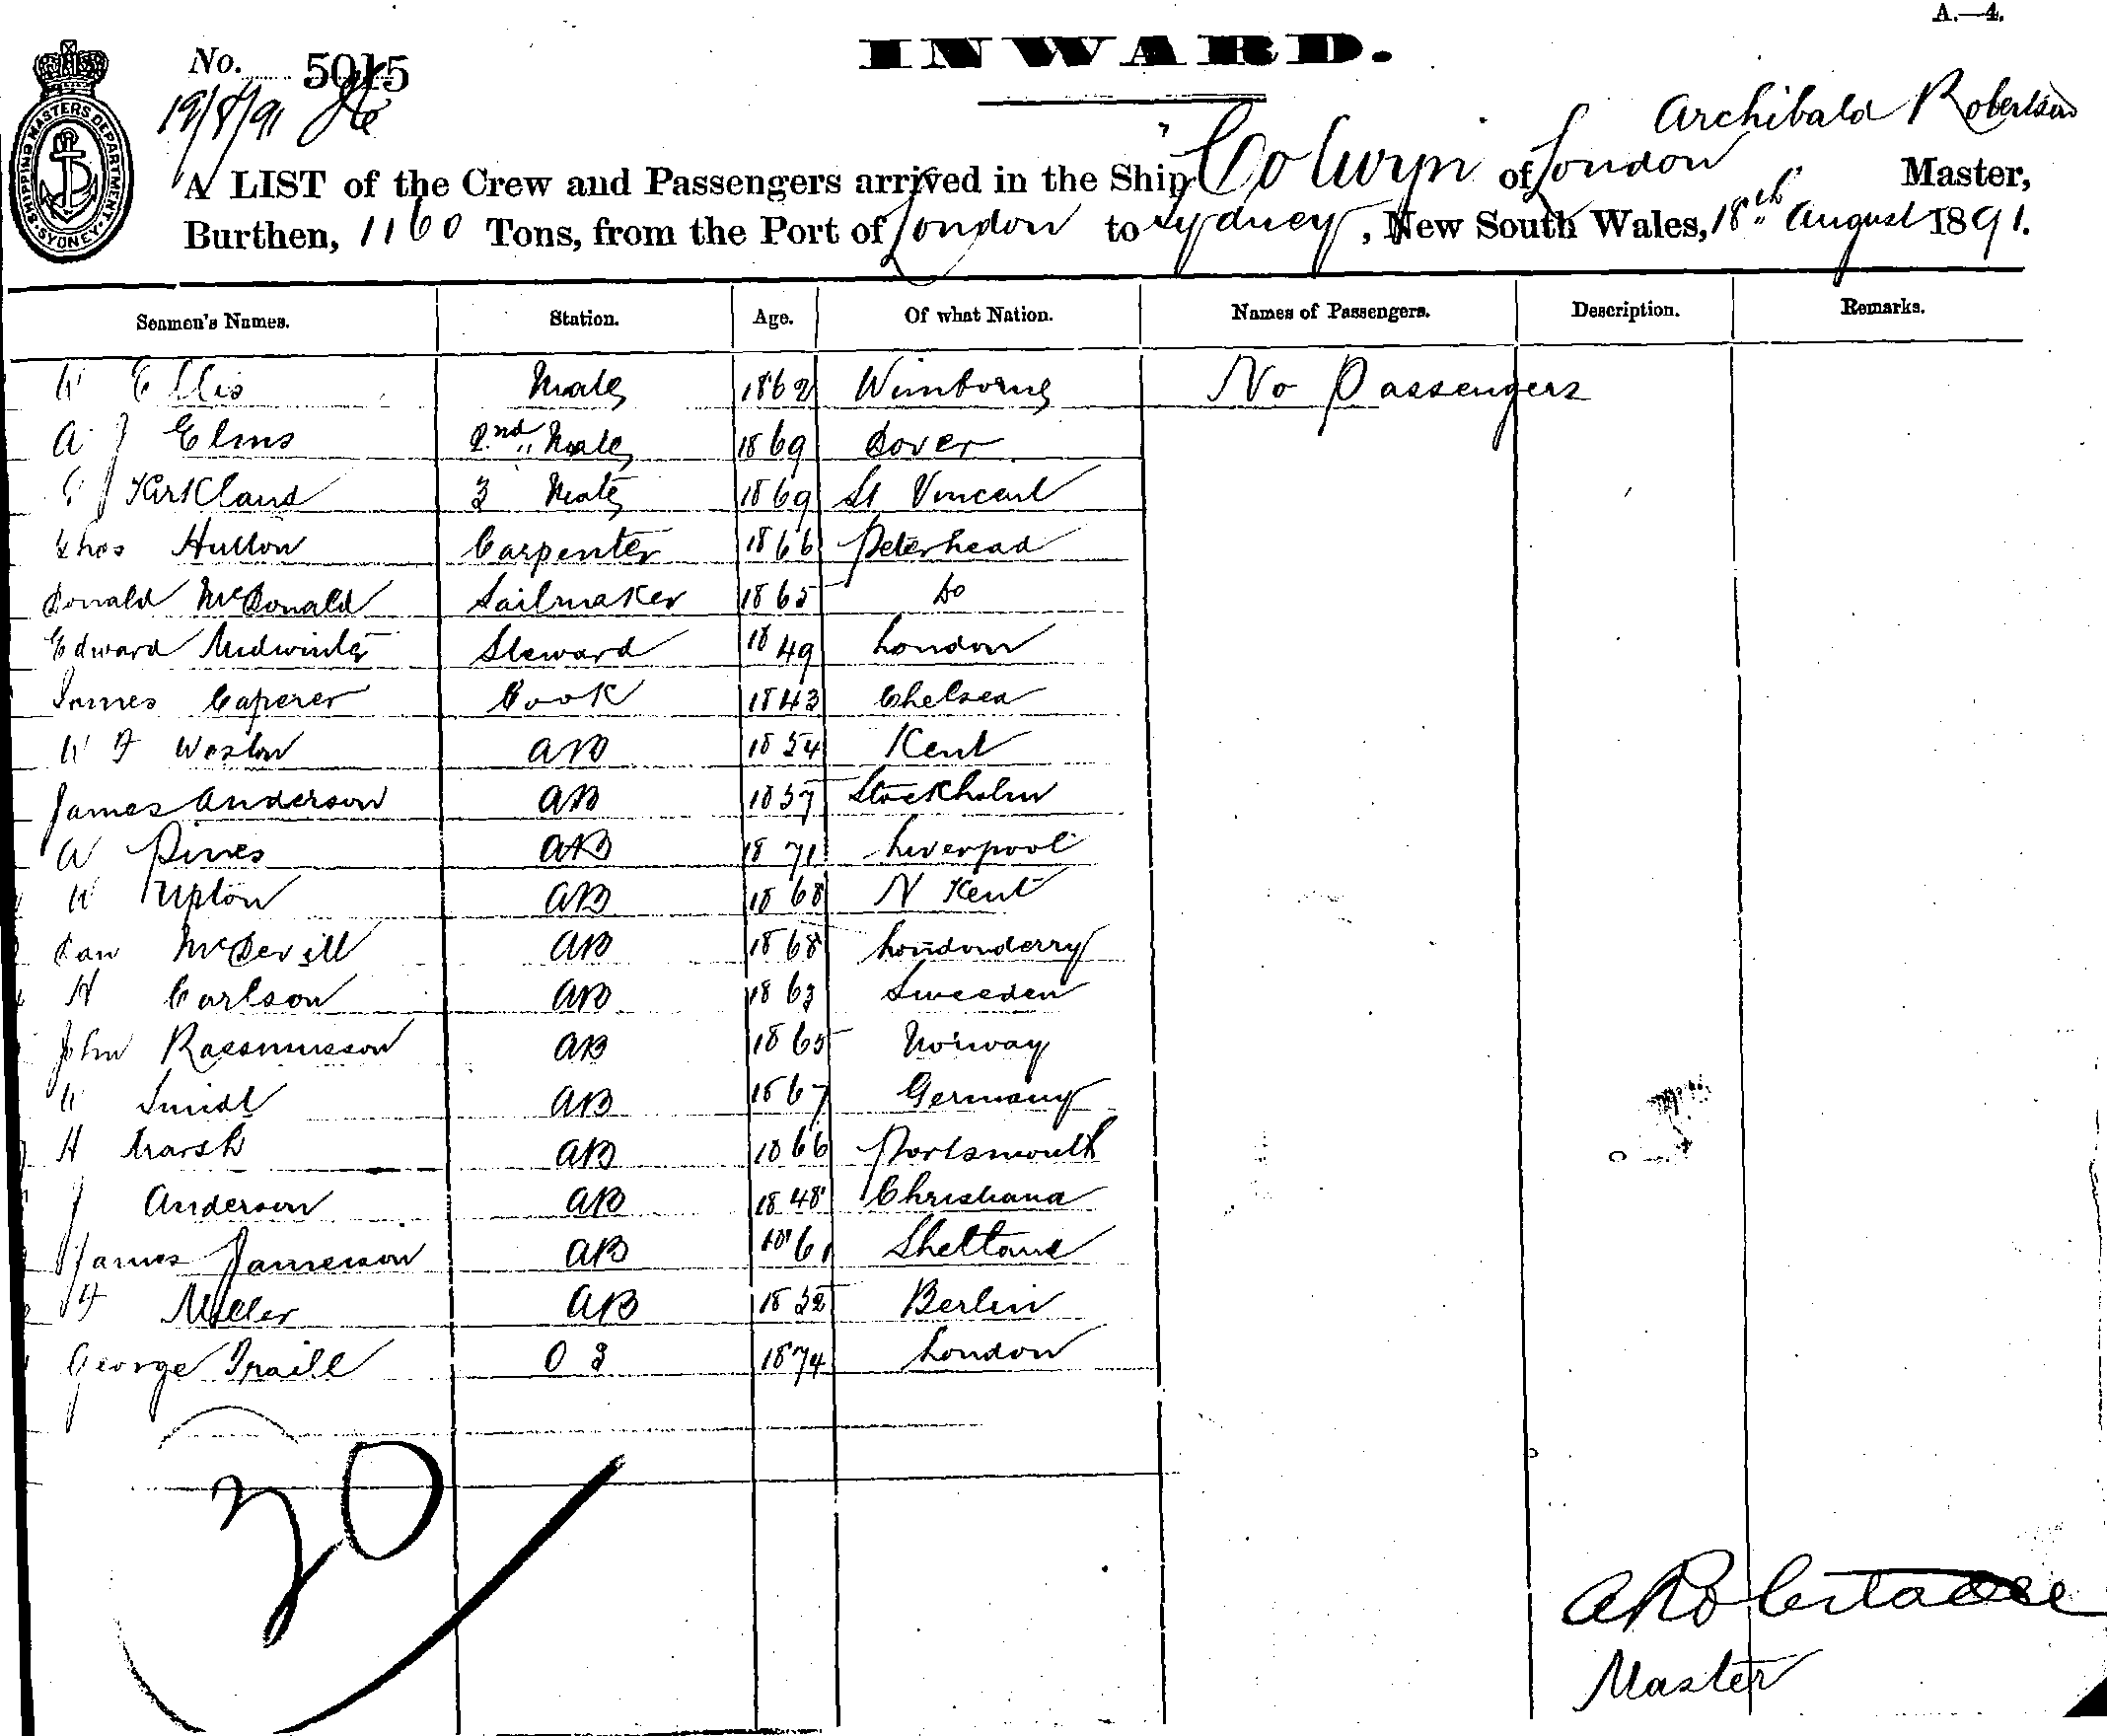 A.—4.
INWARD.
No. 5015
19/8/91
SHIPPING MASTERS DEPARTMENT
SYDNEY
Archibald Robertson
A LIST of the Crew and Passengers arrived in the Ship Colwyn of London Master,
Burthen, 1160 Tons, from the Port of London to Sydney, New South Wales, 18th August 1891.
Seamen's Names. Station. Age. Of what Nation. Names of Passengers. Description. Remarks.
W Ellis Mate 1862 Wimborne No Passengers
A J Elms 2nd Mate 1869 Dover
J Kirkland 3 Mate 1869 St Vincent
Thos Hutton Carpenter 1866 Peterhead
Donald McDonald Sailmaker 1865 Do
Edward Midwinter Steward 1849 London
James Caperer Cook 1843 Chelsea
W F Weston AB 1854 Kent
James Anderson AB 1857 Stockholm
W Pines AB 1871 Liverpool
W Upton AB 1868 N Kent
Dan McDevitt AB 1868 Londonderry
N Carlson AB 1863 Sweeden
John Rassmusson AB 1865 Norway
W Smidt AB 1867 Germany
H Marsh AB 1866 Portsmouth
J Anderson AB 1848 Christiana
James Jamerson AB 1861 Shetland
Miller AB 1852 Berlin
George Traill O S 1874 London
20
A Robertson
Master